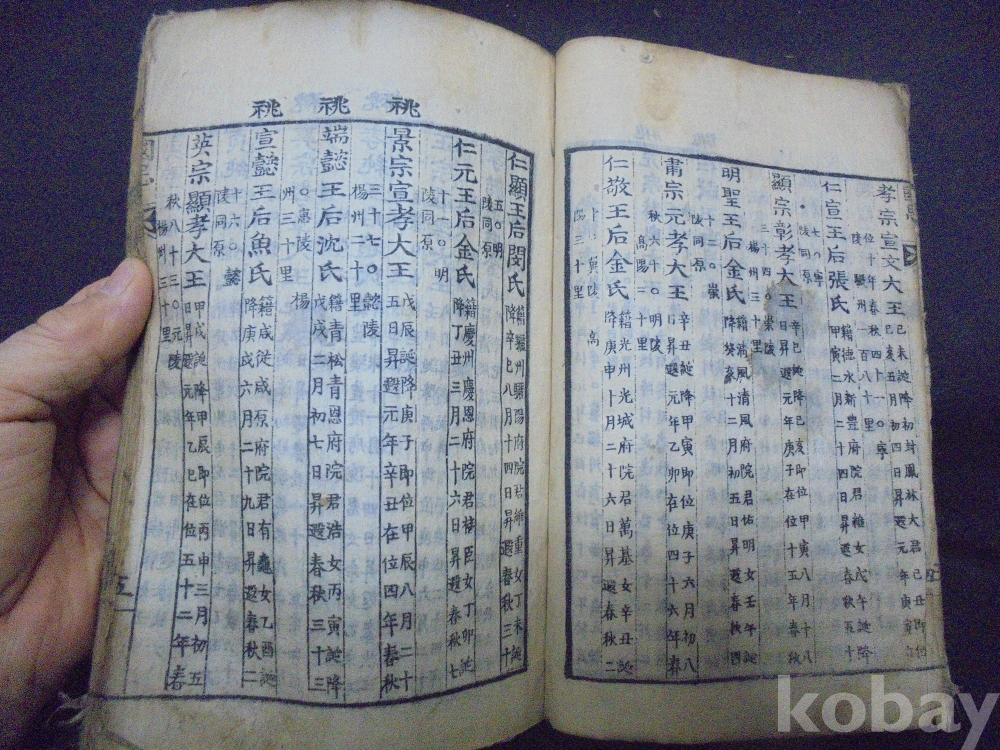 孝宗宣文大王
己未誕降初封鳳林大君己丑即位
己亥五月初四日昇遐元年庚寅在
位十年春秋四十一〇寧
陵驪州一百八十里
仁宣王后張氏
籍德水新豊府院君維女戊午誕降
甲寅二月二十四日昇遐春秋五十
七〇寧
陵同原
顯宗彰孝大王
辛巳誕降己亥即位甲寅八月十八
日昇遐元年庚子在位十五年春秋
三十四〇崇陵
楊州三十里
明聖王后金氏
籍清風清風府院君佑明女壬午誕
降癸亥十二月初五日昇遐春秋四
十二〇崇
陵同原
肅宗元孝大王
辛丑誕降甲寅即位庚子六月初八
日昇遐元年乙卯在位四十六年春
秋六十〇明陵
高陽二十里
仁敬王后金氏
籍光州光城府院君萬基女辛丑誕
降庚申十月二十六日昇遐春秋二
十〇翼陵高
陽三十里
仁顯王后閔氏
籍驪州驪陽府院君維重女丁未誕
降辛巳八月十四日昇遐春秋三十
五〇明
陵同原
仁元王后金氏
籍慶州慶恩府院君柱臣女丁卯誕
降丁丑三月二十六日昇遐春秋七
十一〇明
陵同原
祧
景宗宣孝大王
戊辰誕降庚子即位甲辰八月二十
五日昇遐元年辛丑在位四年春秋
三十七〇懿陵
楊州二十里
祧
端懿王后沈氏
籍青松青恩府院君浩女丙寅誕降
戊戌二月初七日昇遐春秋三十三
〇惠陵楊
州三十里
祧
宣懿王后魚氏
籍咸從咸原府院君有龜女乙酉誕
降庚戌六月二十九日昇遐春秋二
十六〇懿
陵同原
英宗顯孝大王
甲戌誕降甲辰即位丙申三月初五
日昇遐元年乙巳在位五十二年春
秋八十三〇元陵
楊州三十里
五
kobay